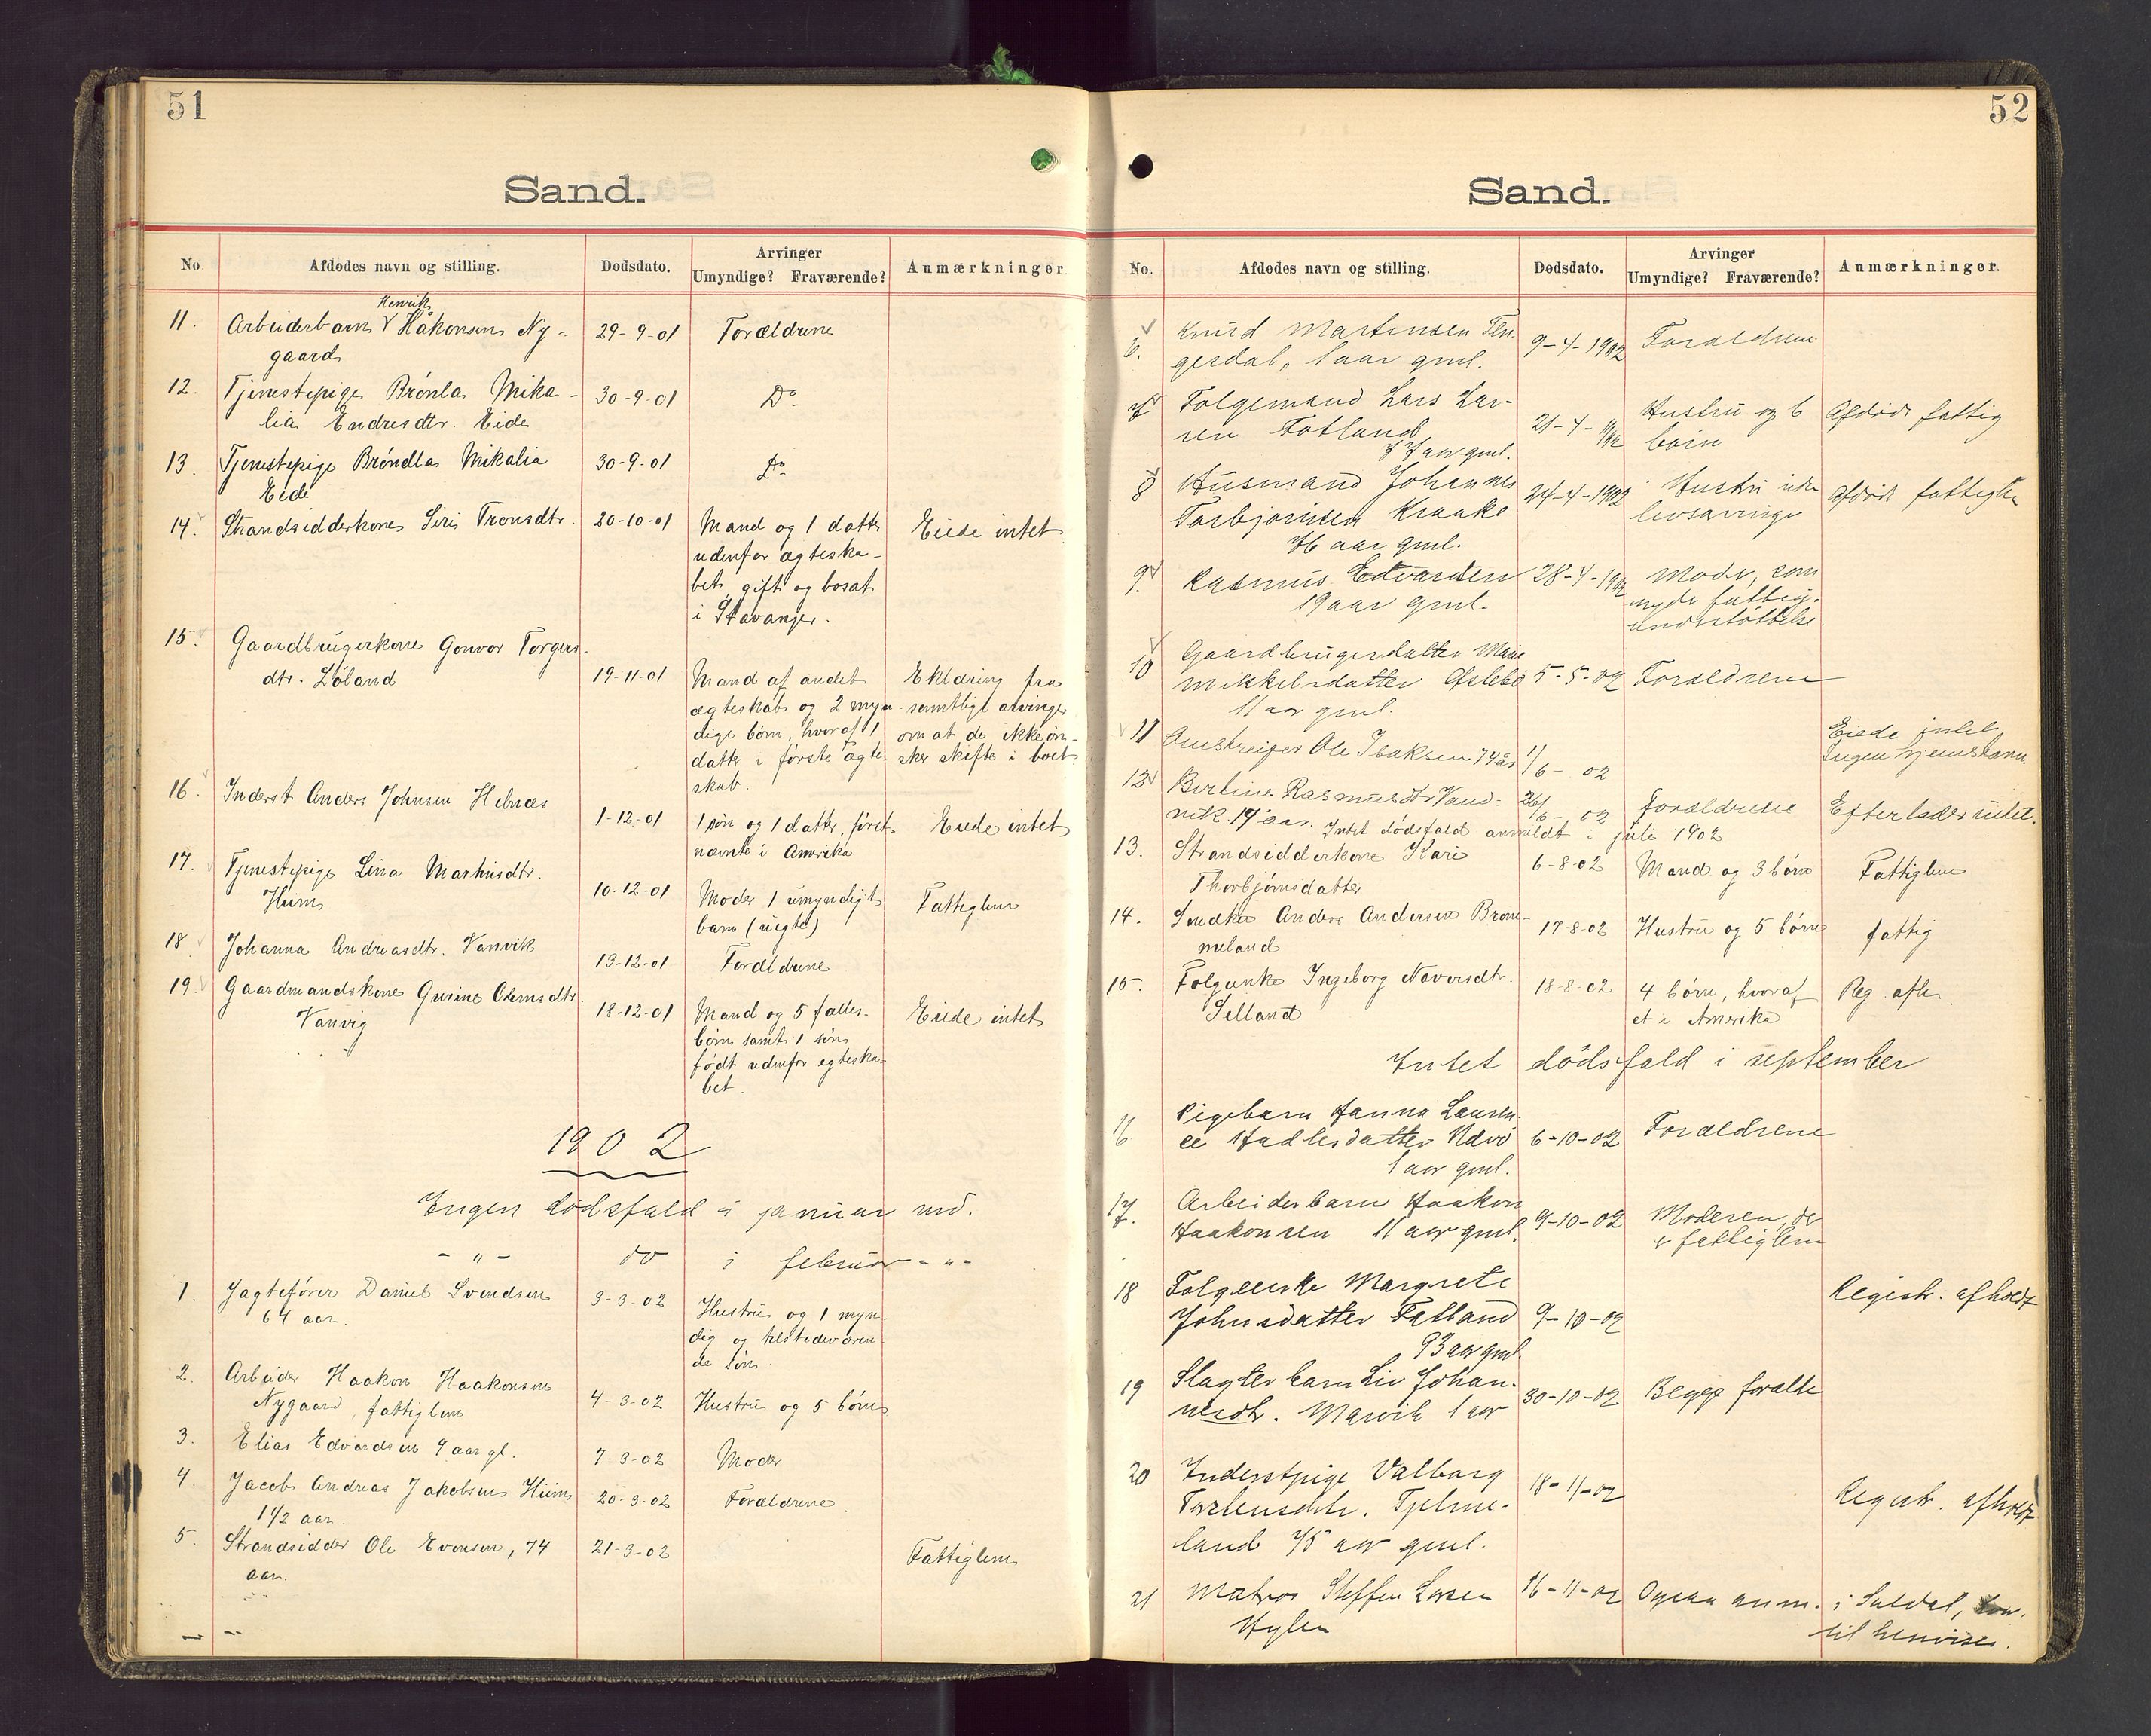 51
Sand.
No. Afdødes navn og stilling. Dødsdato. Arvinger Umyndige? Fraværende? Anmærkninger
Henrik
11. Arbeiderbarn Håkonsen Ny- 29-9-01 Forældrene
gaard
12. Tjenestepige Brónla Mika- 30-9-01 Do
lia Endresdtr. Eide
13. Tjenestepige Bróndla Mikalia 30-9-01 Do
Eide
14. Strandsidderkone Siri Tronsdtr. 20-10-01 Mand og 1 datter Eiede intet
udenfor ægteska-
bet, gift og bosat
i Stavanger.
15. Gaardbrugerkone Gonvor Torgers-
dtr. Løland 19-11-01 Mand af andet Erklæring fra
ægteskab og 2 myn- samtlige arvinger
dige børn, hvoraf 1 om at de ikke øn-
datter i første ægte- sker skifte i boet
skab.
16. Inderst Anders Johnsen Hebnes
1-12-01 1 søn og 1 datter, først- Eiede intet
nævnte i Amerika
17. Tjenestepige Lina Martinsdtr.
Hiim 10-12-01 Moder 1 umyndigt Fattiglem
barn (uægte)
18 Johanna Andreasdtr. Vanvik 13-12-01 Forældrene
19. Gaardmandskone Gurine Olemsdtr.
Vanvig 18-12-01 Mand og 5 fælles- Eiede intet
børn samt 1 søn
født udenfor egteska-
bet.
1902
Ingen dødsfald i januar md.
- " - do i februar - " -
1. Jagtefører Daniel Svendsen 3-3-02 Hustru og 1 myn-
64 aar. dig og tilstedeværen-
de søn.
2. Arbeider Haakon Haakonsen
Nygaard, fattiglem 4-3-02 Hustru og 5 børn
3. Elias Edvardsen 9 aar gl. 7-3-02 Moder
4. Jacob Andreas Jakobsen Hiim 20-3-02 Forældrene.
1 1/2 aar.
5. Strandsidder Ole Evensen, 74 21-3-02 Fattiglem
aar.
52
Sand.
No. Afdødes navn og stilling. Dødsdato. Arvinger Umyndige? Fraværende? Anmærkninger.
6. Knud Martinsen Ten- 9-4-1902 Forældrene
gesdal, 1 aar gml.
7 Folgemand Lars Lar- 21-4-1902 Hustru og 6 Afdøde fattig
sen Fatland børn
77 aar gml.
8 Husmand Johannes 24-4-1902 Hustru uden Afdøde fattiglem
Torbjørnsen Kraake livsarvinge
76 aar gml.
9. Rasmus Edvardsen 28-4-1902 Moder, som
19 aar gml. nyder fattig-
understøttelse.
10 Gaardbrugerdatter Marie
Mikkelsdatter Øslebø 5-5-02 Forældrene
11 aar gml.
11 Omstreifer Ole Isaksen 74 år 1/6-02 Eiede intet
Ingen hjemstavn.
12 Bertine Rasmusdtr Vand- 26/6-02 Forældrene Efterlader intet.
vik. 17 aar. Intet dødsfald anmeldt i juli 1902
13. Strandsidderkone Kari 6-8-02 Mand og 3 børn Fattiglem
Thorbjørnsdatter
14. Snedker Anders Andersen Brom- 17-8-02 Hustru og 5 børn fattig
meland
15. Folgenke Ingeborg Naversdtr. 18-8-02 4 børn, hvoraf Reg. afh.
Selland et i Amerika
Intet dødsfald i september
16 Pigebarn Hanna Lauren-
ce Hadlesdatter 6-10-02 Forældrene
1 aar gml.
17. Arbeiderbarn Haakon
Haakonsen 11 aar gml. 9-10-02 Moderen, der
er fattiglem
18 Folgeenke Margrete Registr. afholdt
Johnsdatter Fatland 9-10-02
93 aar gml.
19 Slagterbarn Liv Johan- 30-10-02 Begge forældre
nesdtr. Marvik 1 aar
20 Inderstpige Valborg 18-11-02 Registr. afholdt
Torbensdtr. Tjelme-
land 75 aar gml.
21 Matros Steffen Larsen 16-11-02 Ogsaa anm. i Suldal, hvor-
Hylen til henvises.